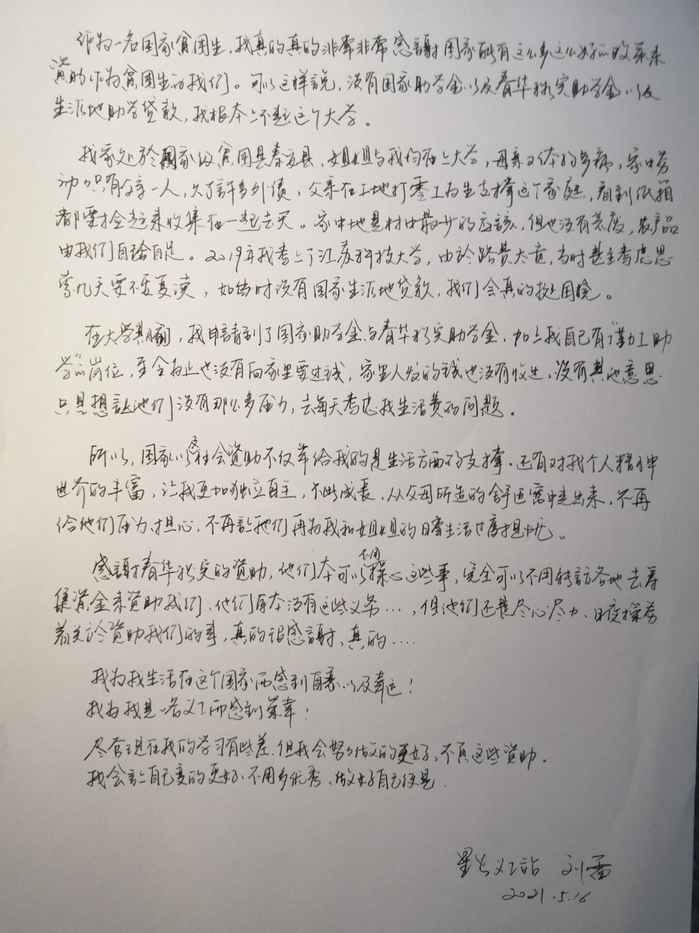 作为一名国家贫困生，我真的真的非常非常感謝国家能有这么多这么好的政策来
資助作为贫困生的我们。可以这样説，没有国家助学金以及春华秋实助学金以及
生源地助学贷款，我根本上不起这个大学。
我家处於国家级贫困县秦安县，姐姐与我均在上大学，母亲又体弱多病，家中劳
动力只有父亲一人，欠了許多外债，父亲在工地打零工为生支撑这个家庭，看到纸箱
都要拾起来收集在一起去买。家中地是村中最少的应該，但也没有荒废，农产品
由我们自给自足。2019年我考上了江苏科技大学，由於路费太貴，当时甚至考虑思
索几天要不要复读，如当时没有国家生源地贷款，我们会真的挺困难。
在大学期间，我申請到了国家助学金与春华秋实助学金，加上我自己有了"勤工助
学"岗位，至今为止也没有向家里要过钱，家里人发的钱也没有收过，没有其他意思
只是想让他们没有那么多压力，去每天考虑我生活费的问题。
所以，国家以及社会资助不仅带给我的是生活方面的支撑，还有对我个人精神
世界的丰富，让我更加独立自主，不断成长，从父母所造的舒适窝中走出来，不再
给他们压力、担心，不再让他们再为我和姐姐的日常生活过度担忧。
感謝春华秋实的资助，他们本可以不用操心这些事，完全可以不用转訪各地去筹
集资金来资助我们，他们原本没有这些义务...，但他们还是尽心尽力、日夜操劳
着关於资助我们的事，真的很感謝、真的....
我为我生活在这个国家而感到自豪以及幸运！
我为我是一名义工而感到荣幸！
尽管现在我的学习有些差，但我会努力做的更好，不負这些资助。
我会让自己变的更好，不用多优秀、做好自己便是
星火义工站 刘
2021.5.16